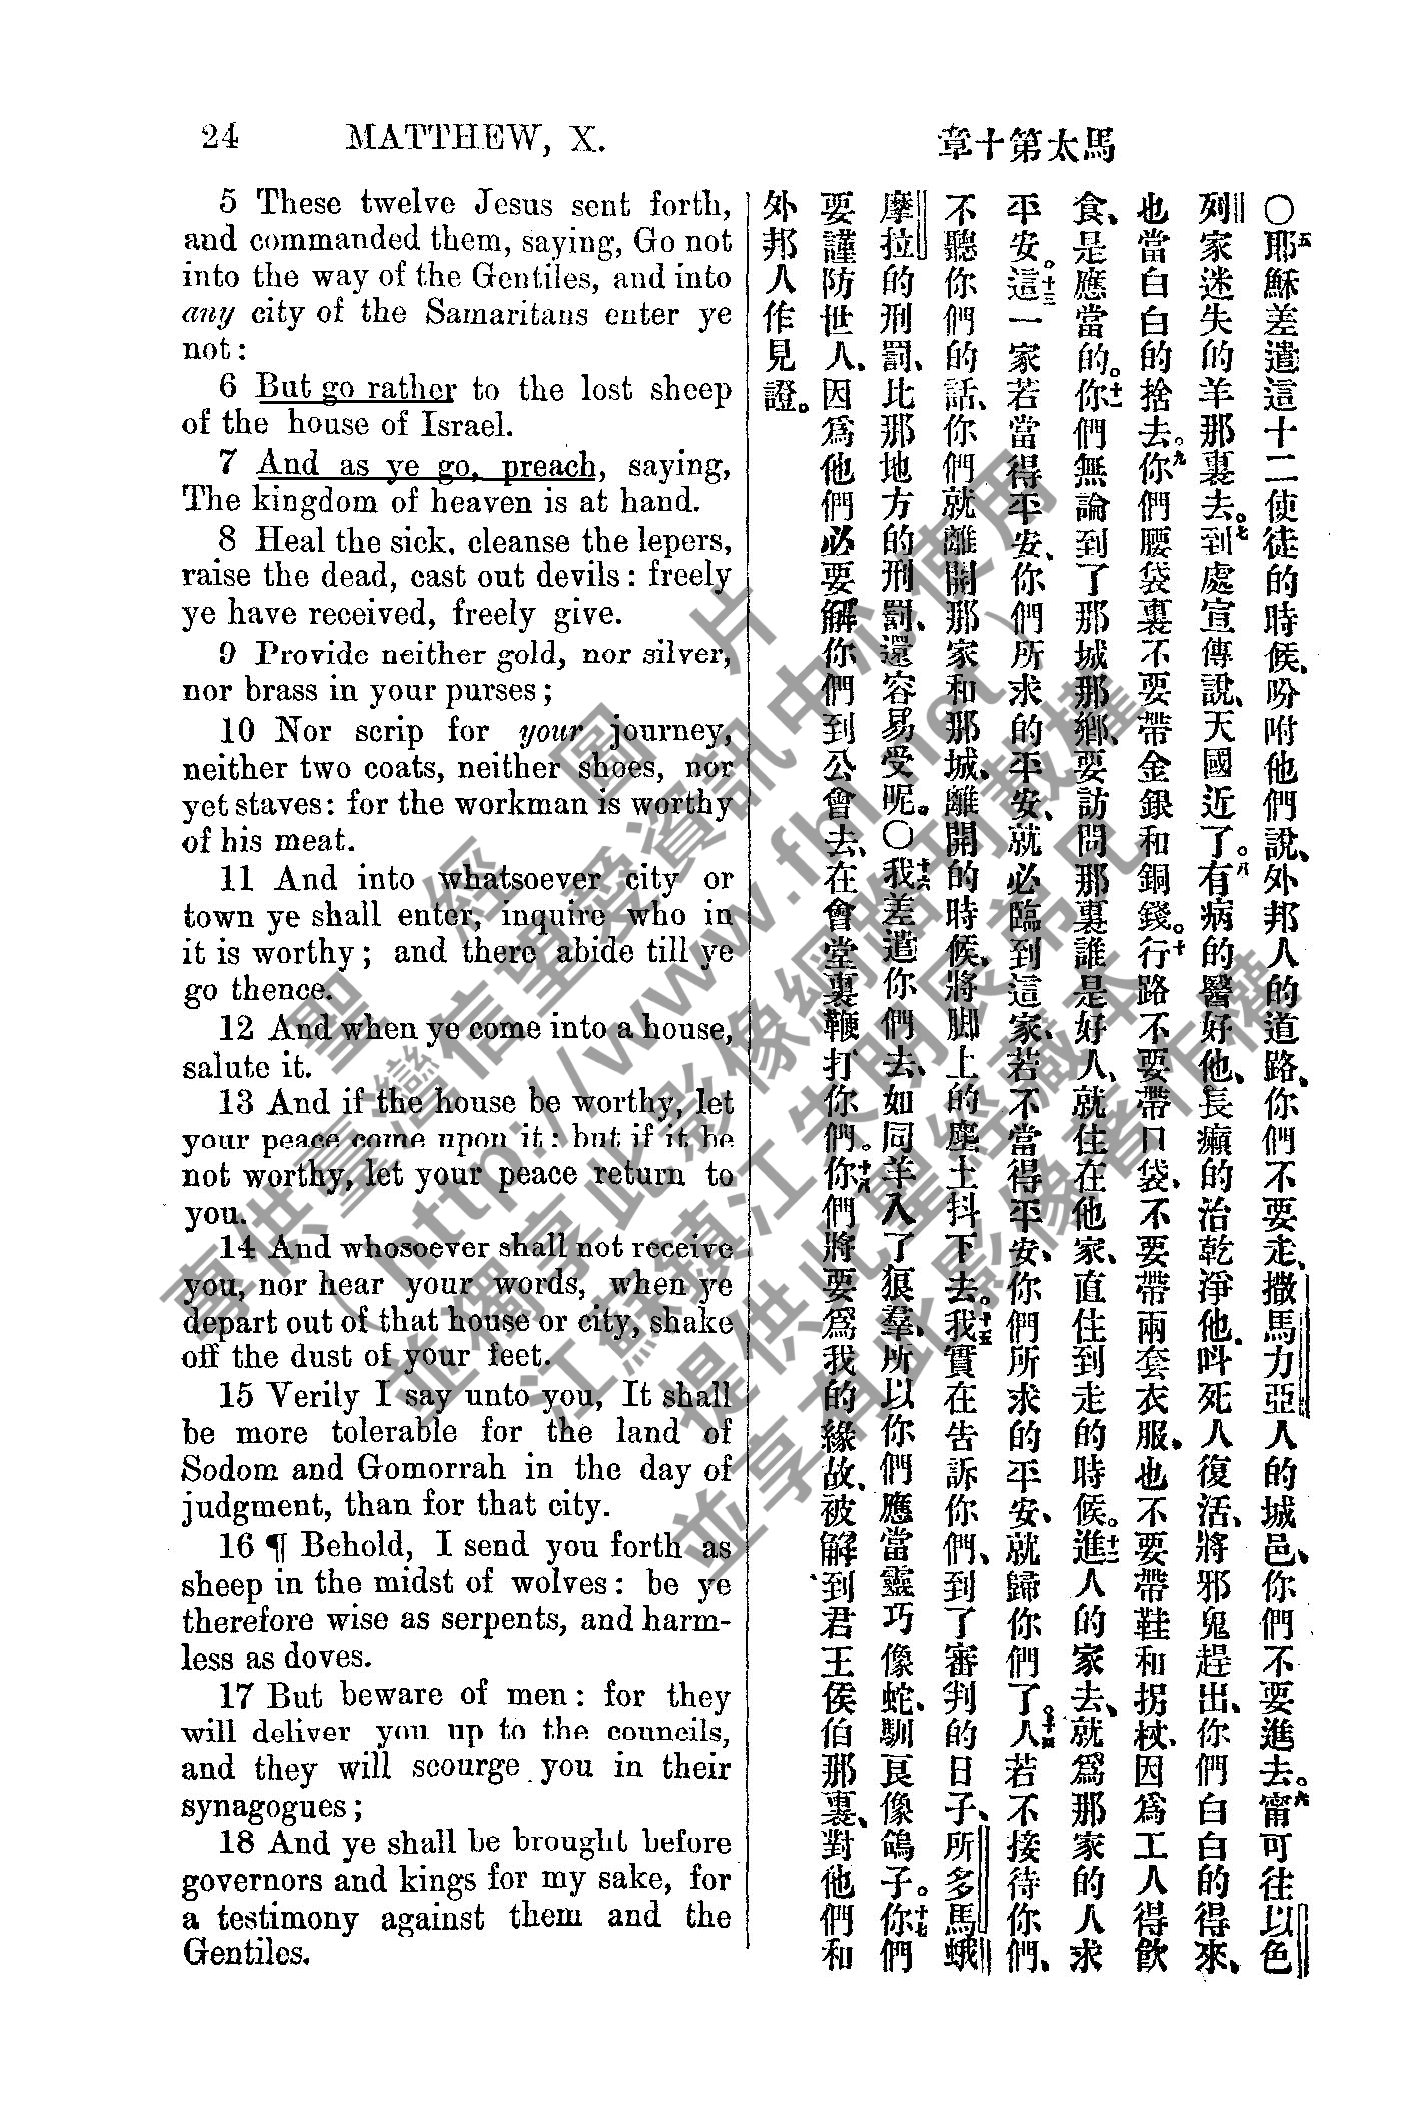 24 MATTHEW, X.
章十第太馬
5 These twelve Jesus sent forth,
and commanded them, saying, Go not
into the way of the Gentiles, and into
any city of the Samaritans enter ye
not:
6 But go rather to the lost sheep
of the house of Israel.
7 And as ye go, preach, saying,
The kingdom of heaven is at hand.
8 Heal the sick, cleanse the lepers,
raise the dead, cast out devils: freely
ye have received, freely give.
9 Provide neither gold, nor silver,
nor brass in your purses;
10 Nor scrip for your journey,
neither two coats, neither shoes, nor
yet staves: for the workman is worthy
of his meat.
11 And into whatsoever city or
town ye shall enter, inquire who in
it is worthy; and there abide till ye
go thence.
12 And when ye come into a house,
salute it.
13 And if the house be worthy, let
your peace come upon it: but if it be
not worthy, let your peace return to
you.
14 And whosoever shall not receive
you, nor hear your words, when ye
depart out of that house or city, shake
off the dust of your feet.
15 Verily I say unto you, It shall
be more tolerable for the land of
Sodom and Gomorrah in the day of
judgment, than for that city.
16 ¶ Behold, I send you forth as
sheep in the midst of wolves: be ye
therefore wise as serpents, and harm-
less as doves.
17 But beware of men: for they
will deliver you up to the councils,
and they will scourge you in their
synagogues;
18 And ye shall be brought before
governors and kings for my sake, for
a testimony against them and the
Gentiles.
〇五耶穌差遣這十二使徒的時候、吩咐他們說、外邦人的道路、你們不要走、撒馬力亞人的城邑、你們不要進去。六甯可往以色
列家迷失的羊那裏去。七到處宣傳說、天國近了。八有病的醫好他、長癩的治乾淨他、呌死人復活、將邪鬼趕出、你們白白的得來、
也當白白的捨去。九你們腰袋裏不要帶金銀和銅錢。十行路不要帶口袋、不要帶兩套衣服、也不要帶鞋和拐杖、因爲工人得飲
食、是應當的。十一你們無論到了那城那鄉、要訪問那裏誰是好人、就住在他家、直住到走的時候。十二進人的家去、就爲那家的人求
平安。十三這一家若當得平安、你們所求的平安、就必臨到這家、若不當得平安、你們所求的平安、就歸你們了。十四人若不接待你們、
不聽你們的話、你們就離開那家和那城、離開的時候、將脚上的塵土抖下去。十五我實在告訴你們、到了審判的日子、所多馬蛾
摩拉的刑罰、比那地方的刑罰、還容易受呢。〇十六我差遣你們去、如同羊入了狼羣、所以你們應當靈巧像蛇、馴良像鴿子。十七你們
要謹防世人、因爲他們必要解你們到公會去、在會堂裏鞭打你們。十八你們將要爲我的緣故、被解到君王侯伯那裏、對他們和
外邦人作見證。
聖經圖片
專供臺灣信望愛資訊中心使用
(http://www.fhl.net)
並獨享此影像網絡刊載權
江蘇鎮江朱明辰弟兄
提供此聖經藏本
並享有此影像著作權